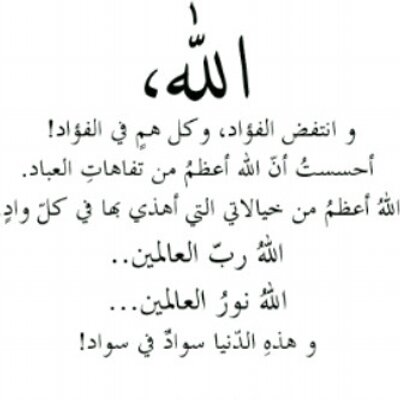 الله،
و انتفض الفؤاد، وكل همٍ في الفؤاد!
أحسستُ أنّ الله أعظمُ من تفاهاتِ العباد.
اللهُ أعظمُ من خيالاتي التي أهذي بها في كلّ وادٍ.
اللهُ ربّ العالمين..
اللهُ نورُ العالمين...
و هذهِ الدّنيا سوادٌ في سواد!